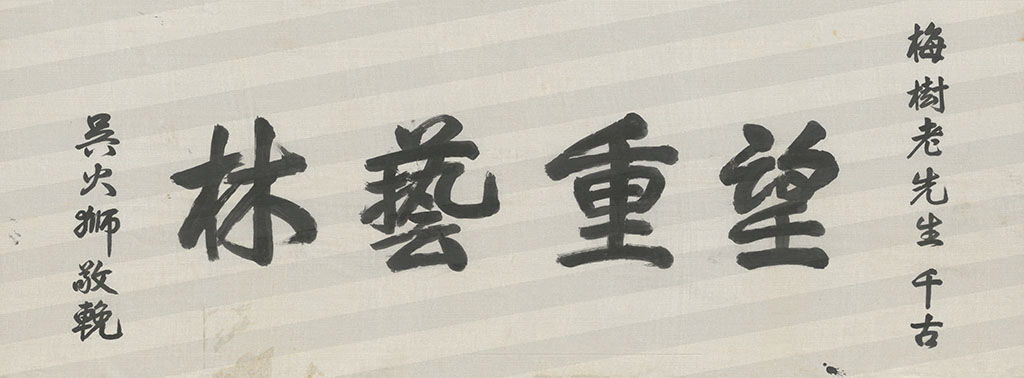 梅樹老先生 千古
望重藝林
吳火獅敬輓